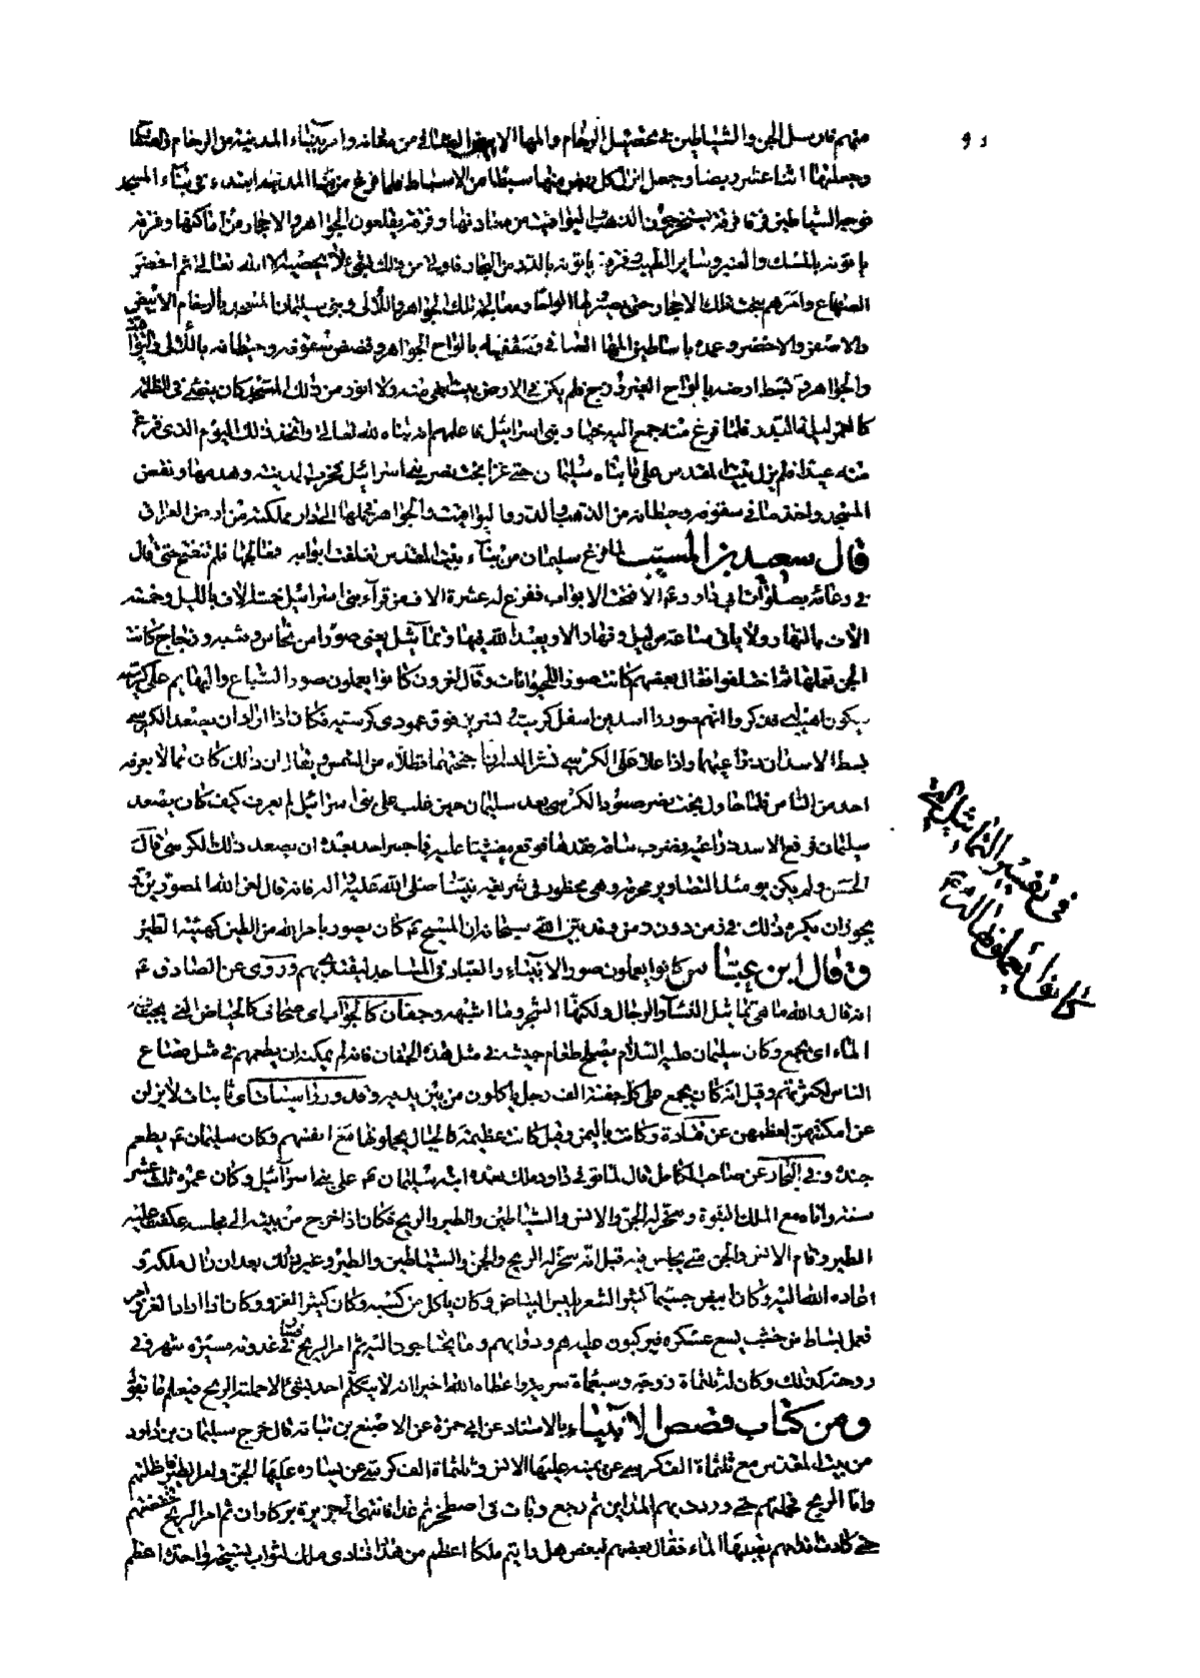 منهم فارسل الجن والشياطين في تحصيل الرخام والمها الابيض الصافي من معادنه وامر ببناء المدينة من الرخام والصفاح
وجعلها اثنا عشر ربضا وجعل انزل كل ربض منها سبطا من الاسباط فلما فرغ من بناء المدينة ابتدء في بناء المسجد
فوجه الشياطين فرقا فرقة يستخرجون الذهب واليواقيت من معادنها وفرقة يقلعون الجواهر والاحجار من اماكنها وفرقة
ياتونه بالمسك والعنبر وساير الطيب وفرقة ياتونه بالدر من البحار فاوتي من ذلك بشيء لا يحصيه الا الله تعالى ثم احضر
الصناع وامرهم بنحت تلك الاحجار حتى يصيرها الواحا ومعالجة تلك الجواهر واللالي وبنى سليمان المسجد بالرخام الابيض
والاصفر والاخضر وعمده باساطين المها الصافي وسقفه بالواح الجواهر وفصص سقوفه وحيطانه باللالي واليواقيت
والجواهر وبسط ارضه بالواح الفيروزج فلم يكن في الارض بيت ابهى منه ولا انور من ذلك المسجد كان يضيء في الظلمة
كالقمر ليلة البدر فلما فرغ منه جمع اليه خيار بني اسرائيل فاعلمهم انه بناه لله تعالى واتخذ ذلك اليوم الذي فرغ
منه عيدا فلم يزل بيت المقدس على ما بناه سليمان حتى غزا بخت نصر بني اسرائيل فخرب المدينة وهدمها ونقض
المسجد واخذ ما في سقوفه وحيطانه من الذهب والدر واليواقيت والجواهر فحملها الى دار مملكته من ارض العراق
قال سعيد بن المسيب لما فرغ سليمان من بناء بيت المقدس تغلقت ابوابه فعالجها فلم تنفتح حتى قال
في دعائه بصلوات ابي داود ع الا فتحت الابواب ففرغ له عشرة الاف من قراء بني اسرائيل خمسة الاف بالليل وخمسة
الاف بالنهار ولا ياتي ساعة من ليل ونهار الا ويعبد الله فيها وتماثيل يعني صورا من نحاس وشبه وزجاج كانت
الجن تعملها ثم اختلفوا فقال بعضهم كانت صور الحيوانات وقال اخرون كانوا يعملون صور السباع والبهايم على كرسيه
ليكون اهيب له فذكروا انهم صوروا اسدين اسفل كرسيه ونسرين فوق عمودي كرسيه فكان اذا اراد ان يصعد الكرسي
بسط الاسدان ذراعيهما واذا علا على الكرسي نشر النسران اجنحتهما فظللاه من الشمس ويقال ان ذلك كان مما لا يعرفه
احد من الناس فلما حاول بخت نصر صعود الكرسي بعد سليمان حين غلب على بني اسرائيل لم يعرف كيف كان يصعد
سليمان فرفع الاسد ذراعيه فضرب ساقه فقدها فوقع مغشيا عليه فما جسر احد بعده ان يصعد ذلك الكرسي قال
الحسن ولم يكن يومئذ التصاوير محرمة وهي محظورة في شريعة نبينا صلى الله عليه واله فانه قال لعن الله المصورين و
يجوز ان يكره ذلك في زمن دون زمن وقد بين الله سبحانه ان المسيح ع كان يصور بامر الله من الطين كهيئة الطير
وقال ابن عباس كانوا يعملون صور الانبياء والعباد في المساجد ليقتدى بهم وروى عن الصادق ع
انه قال والله ما هي تماثيل النساء والرجال ولكنها الشجر وما اشبهه وجفان كالجواب اي صحاف كالحياض التي يجبى فيها
الماء اي يجمع وكان سليمان عليه السلام يصلح طعام جيشه في مثل هذه الجفان فانه لم يمكن ان يطعمهم في مثل قصاع
الناس لكثرتهم وقيل انه كان يجمع على كل جفنة الف رجل ياكلون من بين يديه وقدور راسيات اي ثابتات لا يزلن
عن امكنتهن لعظمهن عن قتادة وكانت باليمن وقيل كانت عظيمة كالجبال يحملونها مع انفسهم وكان سليمان ع يطعم
جنده وفي البحار عن صاحب الكامل قال لما توفي داود ملك بعده ابنه سليمان ع على بني اسرائيل وكان عمره ثلث عشر
سنة واتاه مع الملك النبوة وسخر له الجن والانس والشياطين والطير والريح فكان اذا خرج من بيته الى مجلسه عكفت عليه
الطير وقام الانس والجن حتى يجلس فيه قيل انه سخر له الريح والجن والشياطين والطير وغير ذلك بعد ان زال ملكه و
اعاده الله اليه وكان ابيض جسيما كثير الشعر يلبس البياض وكان ياكل من كسبه وكان كثير الغزو وكان اذا اراد الغزو امر
فعمل بساط من خشب يسع عسكره فيركبون عليه هم ودوابهم وما يحتاجون اليه ثم امر الريح فسارت في غدوته مسيرة شهر وفي
روحته كذلك وكان له ثلثماة زوجة وسبعماة سرية واعطاه الله اخيرا انه لا يتكلم احد بشيء الا حملته الريح فيعلم ما يقول
ومن كتاب قصص الانبياء بالاسناد عن ابي حمزة عن الاصبغ بن نباتة قال خرج سليمان بن داود
من بيت المقدس مع ثلثماة الف كرسي عن يمينه عليها الانس وثلثماة الف كرسي عن يساره عليها الجن وامر الطير فاظلتهم
وامر الريح فحملتهم حتى وردت بهم المداين ثم رجع وبات في اصطخر ثم غدا فانتهى الى جزيرة بركاوان ثم امر الريح فخفضتهم
حتى كادت اقدامهم يصيبها الماء فقال بعضهم لبعض هل رايتم ملكا اعظم من هذا فنادى ملك لثواب تسبيحة واحدة اعظم
في تفسير التماثيل التي
كانوا يعملونها له ع